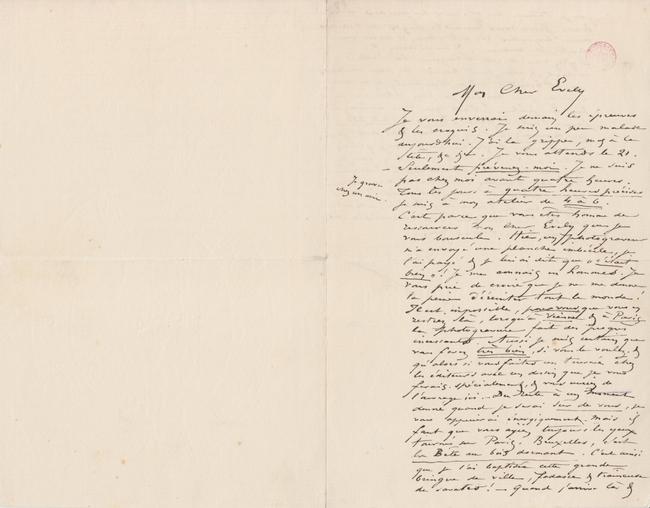 Mon Cher Evely
Je vous enverrai demain les épreuves
& les croquis. Je suis un peu malade
aujourd'hui. J'ai la grippe, mal à la
tête, &c &c. Je vous attends le 21.
Seulement prévenez-moi. Je ne suis
pas chez moi avant quatre heures.
Tous les jours à quatre heures précises
je suis à mon atelier de 4 à 6.
Je grave
chez un ami.
C'est parce que vous êtes homme de
ressources mon cher Evely que je
vous bouscule. Hier, un photograveur
m'a envoyé une planche imbécile, je
l'ai payé & je lui ai dit que « c'était
bien »! Je me connais en hommes. Je
vous prie de croire que je ne me donne
la peine d'éreinter tout le monde!
Il est impossible, pour vous que vous en
restiez là, lorsqu'à Vienne & à Paris
la photogravure fait des progrès
incessants. Aussi je suis certain que
vous ferez très bien, si vous le voulez, &
qu'alors si vous faites un tournée chez
les éditeurs avec un dessin que je vous
ferais spécialement, & vous aurez de
l'ouvrage ici. Du reste à un moment
donné quand je serai sûr de vous, je
vous appuierai énergiquement. Mais il
faut que vous ayiez toujours les yeux
tournés sur Paris. Bruxelles, c'est
la Bête au bois dormant. C'est ainsi
que je l'ai baptisée cette grande
bringue de ville, fadasse & traîneuse
de savates! — Quand j'arrive là &